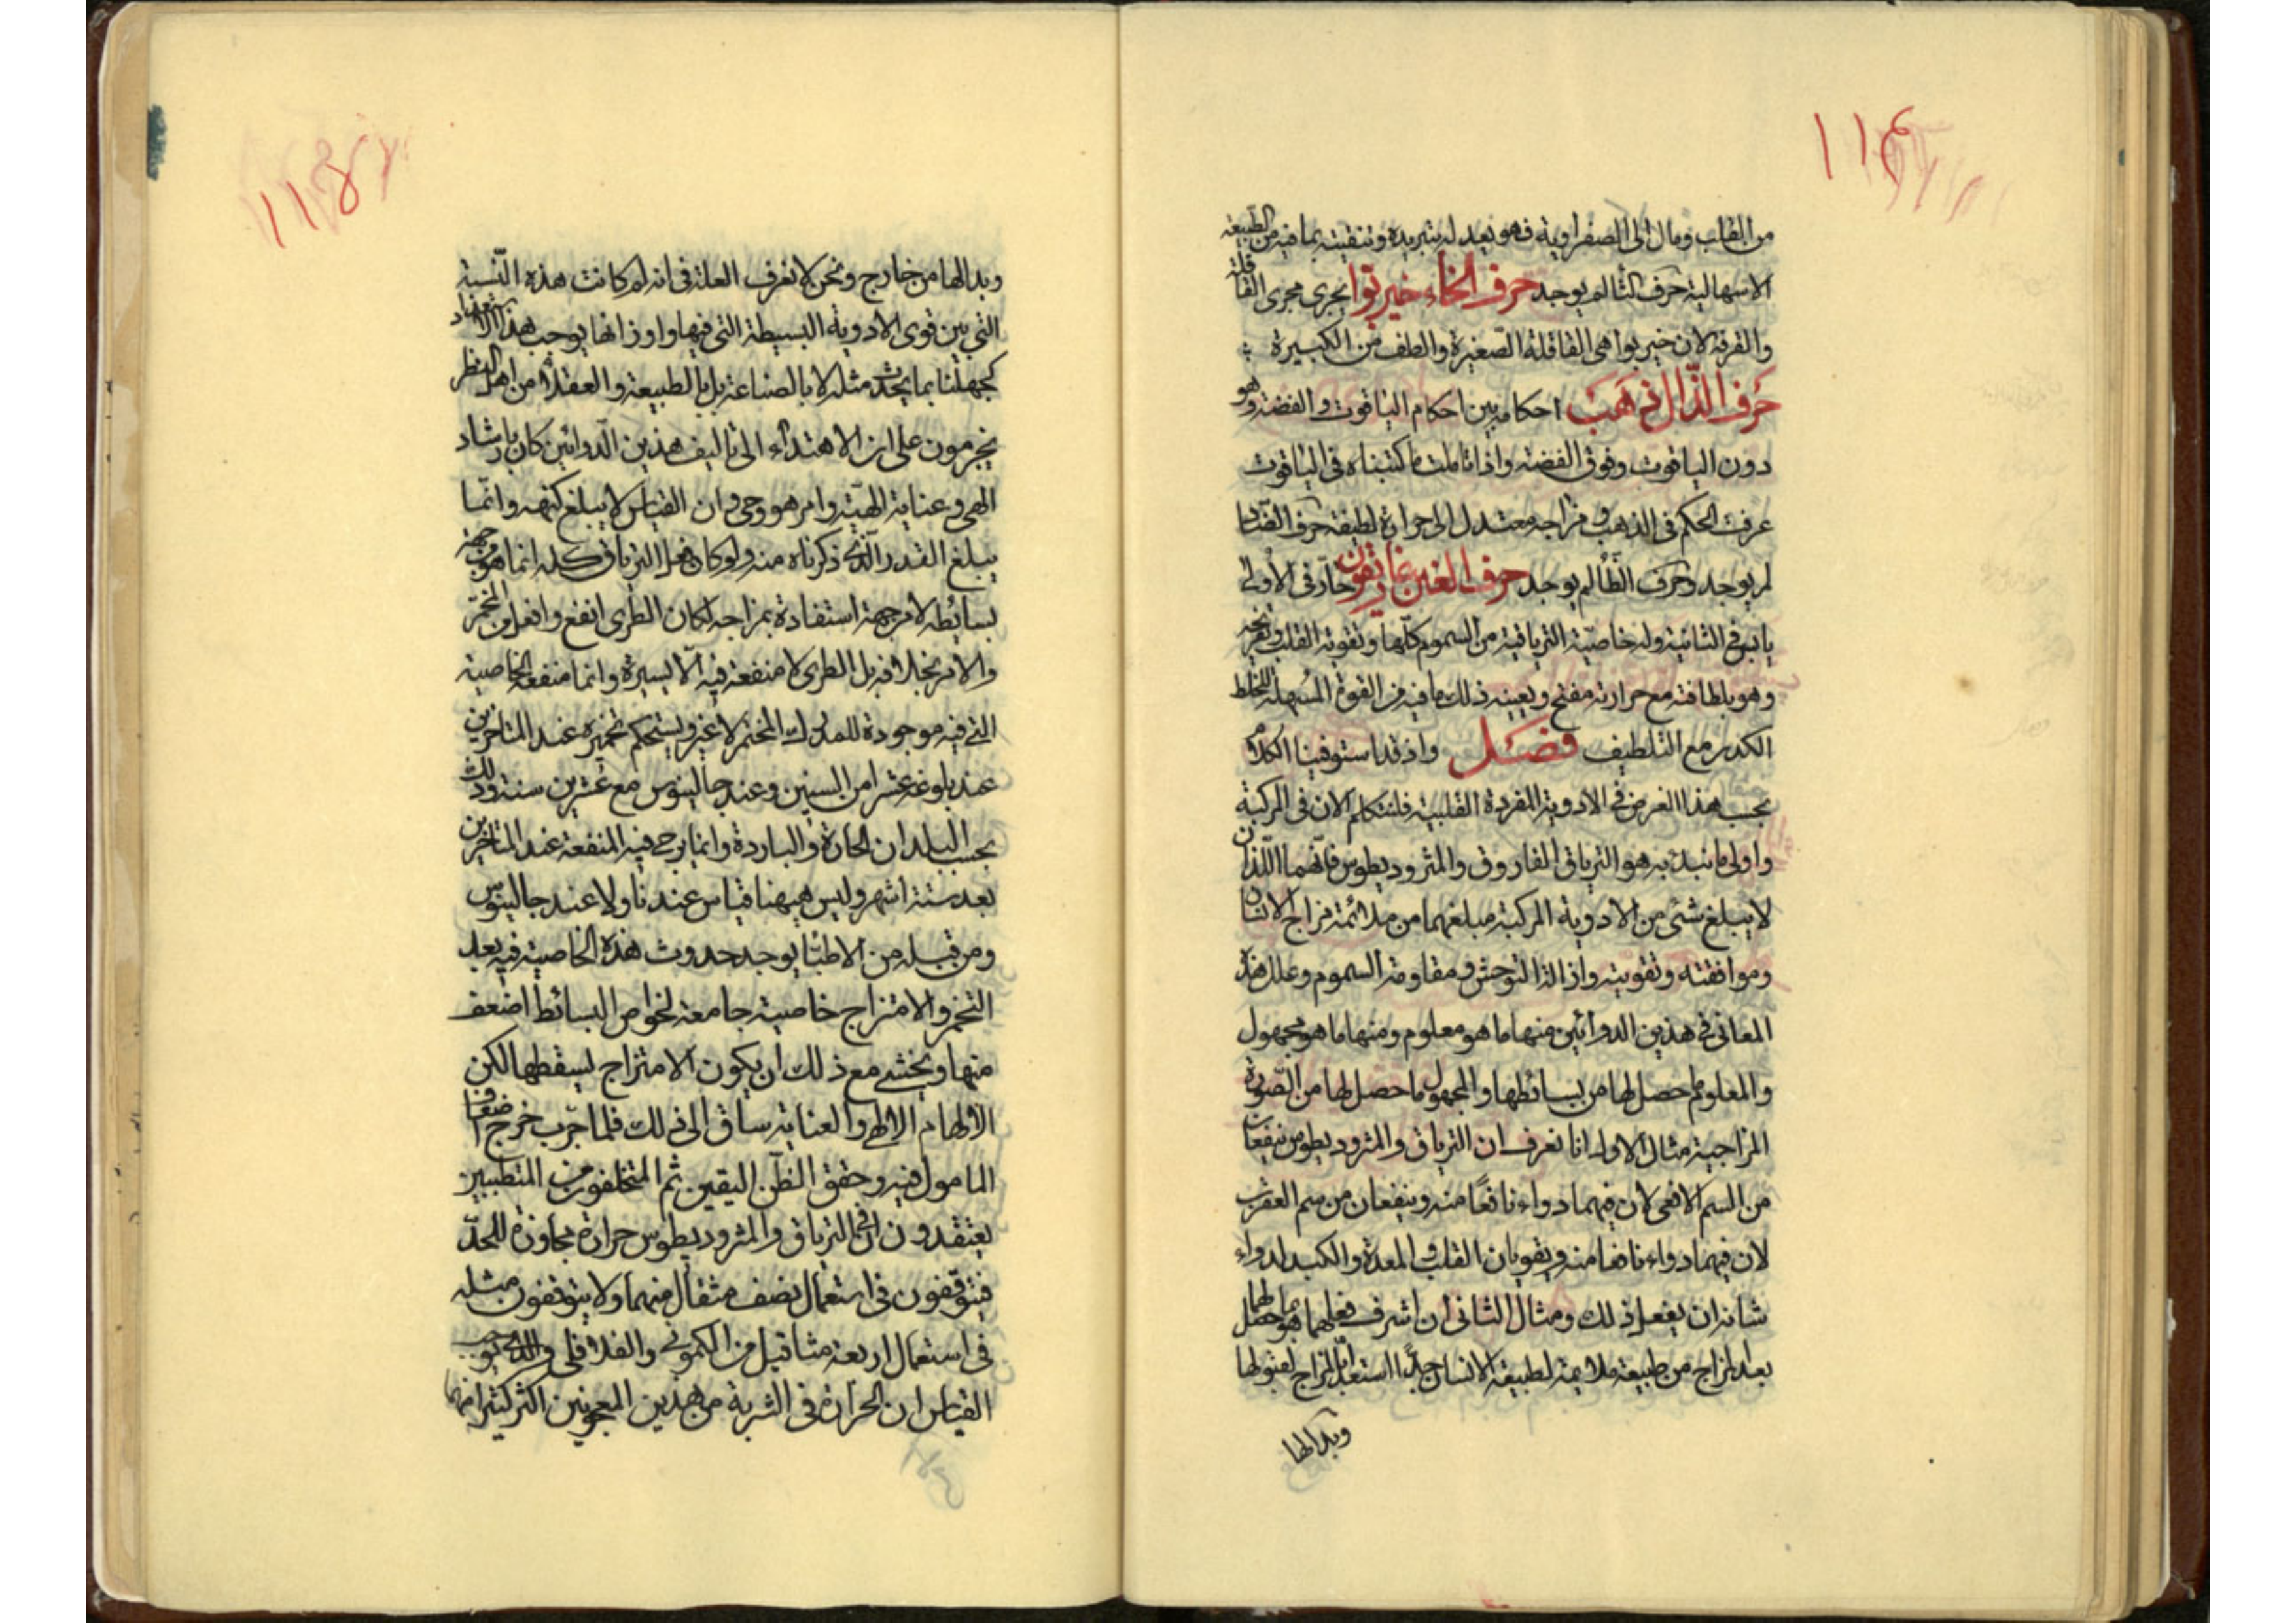 ١١٤
من القلب ومال الى الصفراوية فهو يعدله بتبريده وتنقيته بما فيه من الطبيعة
الاسهالية حرف الثا لم يوجد حرف الخاء خيربوا يجرى مجرى القاقلة
والقرفة لان خيربوا هى القاقلة الصغيرة والطف من الكبيرة
حرف الذال ذهب احكامه بين احكام الياقوت والفضة وهو
دون الياقوت وفوق الفضة واذا تاملت ما كتبناه فى الياقوت
عرفت الحكم فى الذهب و مزاجه معتدل الى حرارة لطيفة حرف الضاد
لم يوجد وحرف الظا لم يوجد حرف الغين غاريقون حار فى الاولى
يابس فى الثانية وله خاصية الترياقية من السموم كلها وتقوية القلب وتفريحه
وهو بلطافته مع حرارته مفتح ويعينه ذلك ما فيه من القوة المسهلة للخلط
الكدر مع التلطيف فصل واذ قد استوفينا الكلام
بحسب هذا الغرض فى الادوية المفردة القلبية فلنتكلم الان فى المركبة
واولى ما نبدء به هو الترياق الفاروق والمثروديطوس فانهما اللذان
لا يبلغ شئ من الادوية المركبة مبلغهما من ملائمة مزاج الانسان
وموافقته وتقويته وازالة التوحش ومقاومة السموم وعلل هذه
المعانى فى هذين الدوائين منها ما هو معلوم ومنها ما هو مجهول
والمعلوم ما حصل لها من بسائطها والمجهول ما حصل لها من الصورة
المزاجية مثال الاول انا نعرف ان الترياق والمثروديطوس ينفعان
من السم الافعى لان فيهما دواء نافعًا منه وينفعان من سم العقرب
لان فيهما دواء نافعا منه ويقويان القلب والمعدة والكبد لدواء
شانه ان يفعل ذلك ومثال الثانى ان اشرف فعلهما هو بما حصل لهما
بعد المزاج من طبيعة ملائمة لطبيعة الانسان جدًا استعد المزاج لقبولها
وبدالها
١١٥
وبدالها من خارج ونحن لا نعرف العلة فى انه لم كانت هذه النسبة
التى بين قوى الادوية البسيطة التى فيها واوزانها يوجب هذا الاستعداد
كجهلنا بما يحدث مثله لا بالصناعة بل بالطبيعة والعقلاء من اهل النظر
يجزمون على ان الاهتداء الى تاليف هذين الدوائين كان بارشاد
الهى وعناية الهية وامر هو وحى وان القياس لا يبلغ كنهه وانما
يبلغ القدر الذى ذكرناه منه ولو كان فعل الترياق كله انما هو من جهة
بسائطه لا من جهة استفادة بمزاجه لكان الطرى انفع وافعل من المخمر
والامر بخلافه بل الطرى لا منفعة فيه الا يسيرة وانما منفعة الخاصية
التى فيه موجودة للمدرك المختمر لا غير ويستحكم تخميره عند المتاخرين
عند بلوغه عشرا من السنين وعند جالينوس مع عشرين سنة وذلك
بحسب البلدان الحارة والباردة وانما يرجى فيه المنفعة عند المتاخرين
بعد ستة اشهر وليس ههنا قياس عندنا ولا عند جالينوس
ومن قبله من الاطبا يوجد حدوث هذه الخاصية فيه بعد
التخمر والامتزاج خاصية جامعة لخواص البسائط اضعف
منها ويخشى مع ذلك ان يكون الامتزاج ليسقطها لكن
الالهام الالهى والعناية ساق الى ذلك فلما جرب خرج اضعاف
المامول فيه وحقق الظن اليقين ثم المتخلفون من المتطببين
يعتقدون ان فى الترياق والمثروديطوس حرارة مجاوزة للحد
فيتوقفون فى استعمال نصف مثقال منهما ولا يتوقفون مثله
فى استعمال اربعة مثاقيل من الكمونى والفلافلى والذى يوجب
القياس ان الحرارة فى الشربة من هذين المعجونين اكثر كثيرا منهما